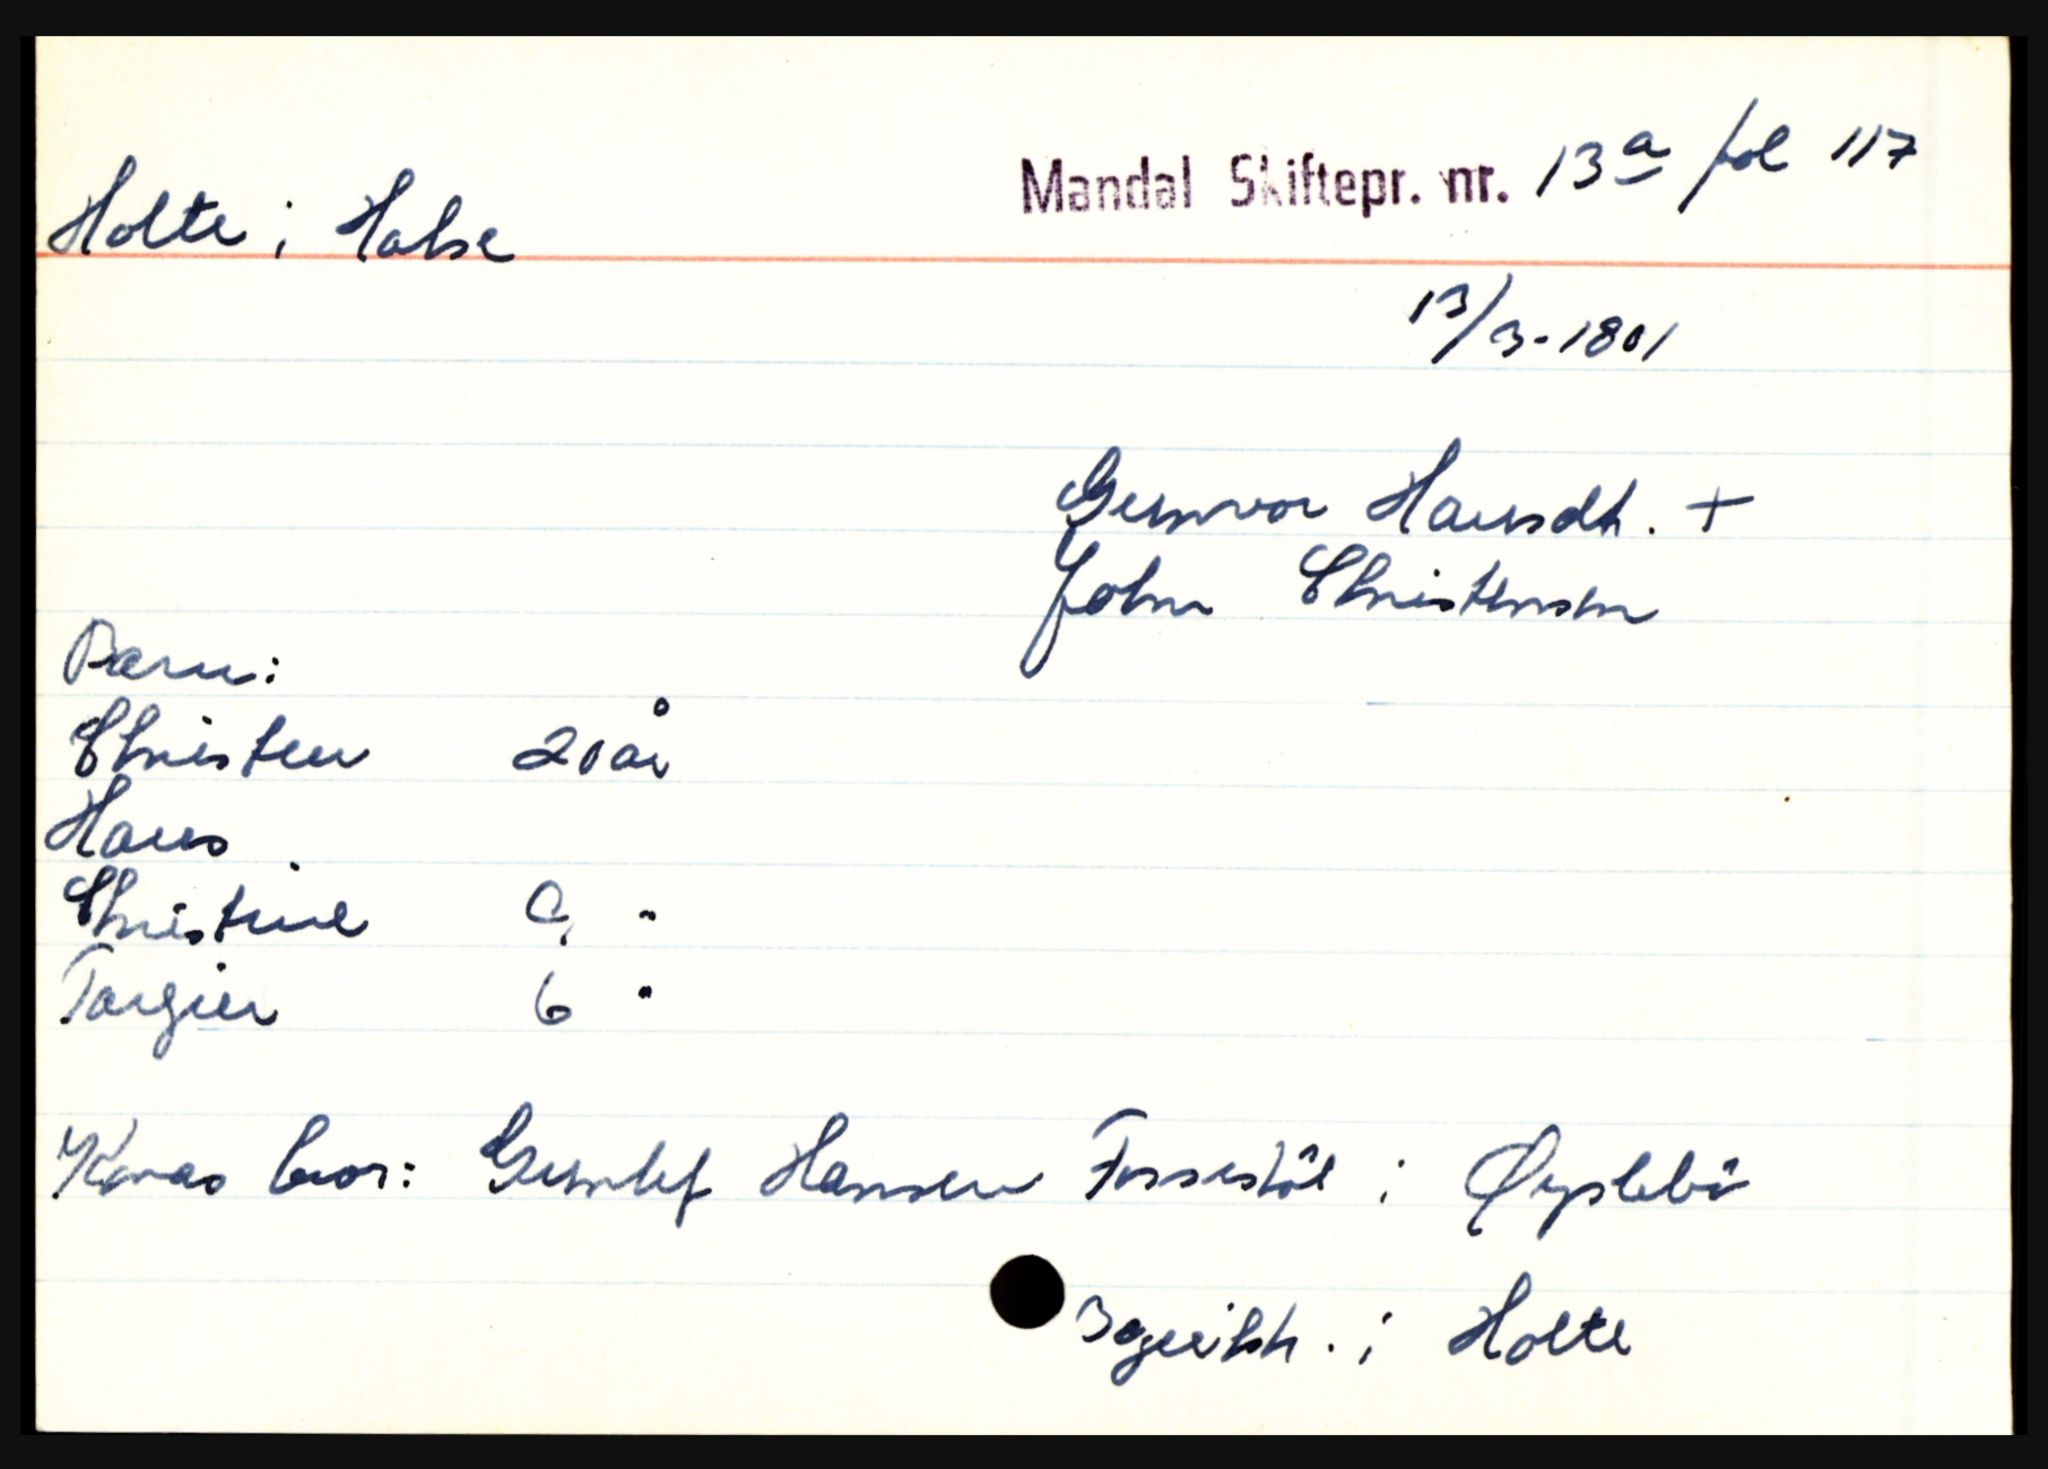 Mandal Skiftepr. nr. 13a fol 117
Holte i Halse
13/3-1801
Gunvor Hansdt. +
John Christensen
Barn:
Christen 20 år
Hans
Christine 9 "
Targier 6 "
Konas bror: Gunlef Hansen Fossestöl i Øyslebö
3 gr i Holte